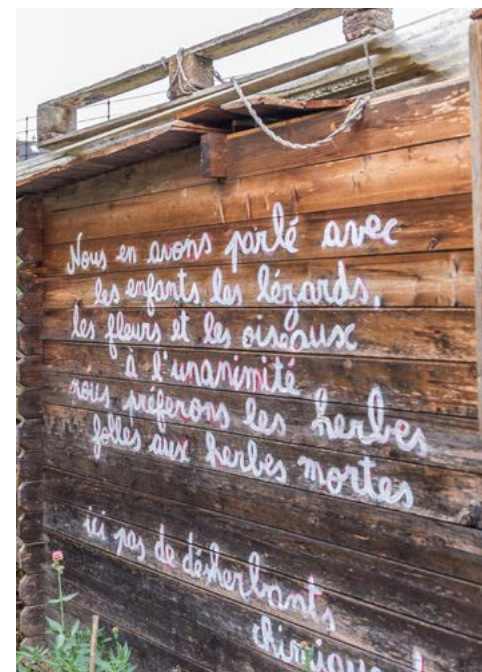 Nous en avons parlé avec
les enfants les lézards,
les fleurs et les oiseaux
à l'unanimité
nous préferons les herbes
folles aux herbes mortes
ici pas de désherbants